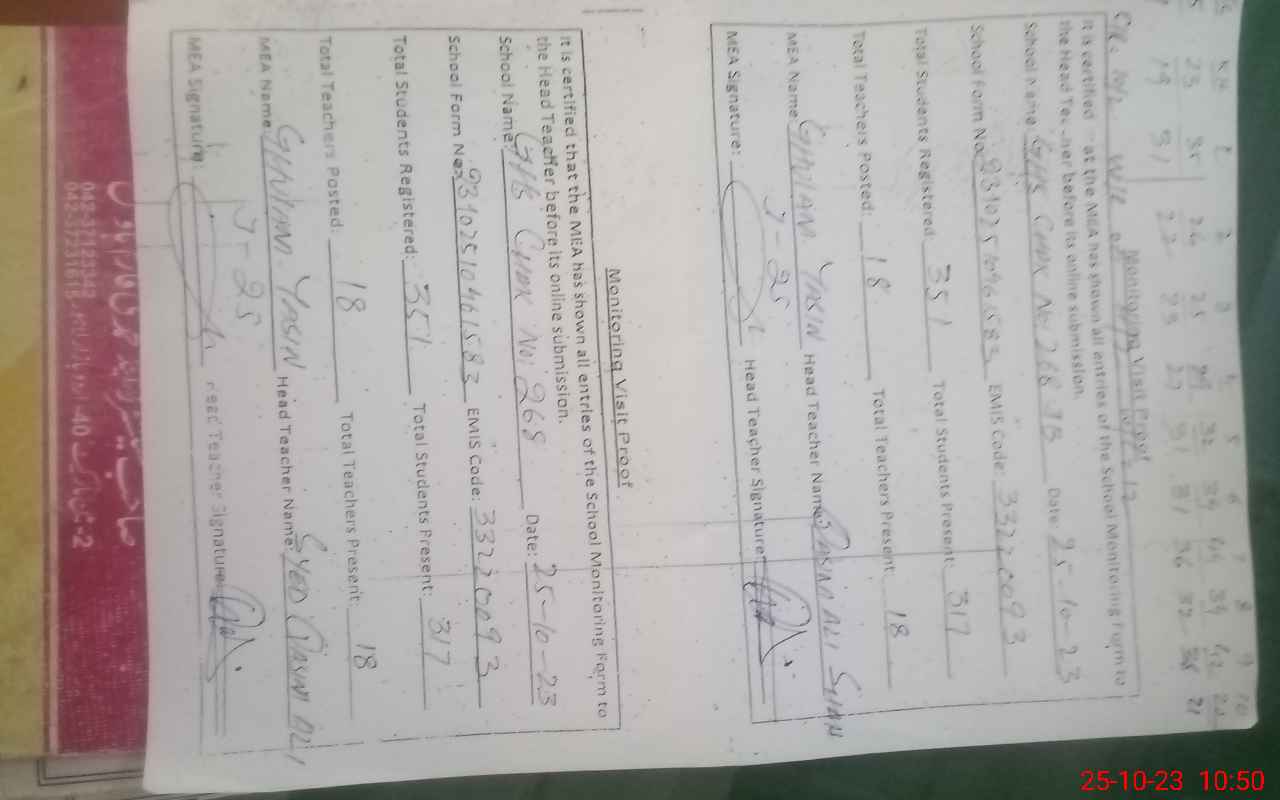 Kh 1 2 3 4 5 6 7 8 9 10
23 35 24 25 29 32 34 44 39 42 22
19 31 22 23 27 31 31 36 32 38 21
Monitoring Visit Proof
It is certified that the MEA has shown all entries of the School Monitoring Form to
the Head Teacher before its online submission.
School Name: GHS Chak No: 268 JB Date: 25-10-23
School Form No: 931025104461583 EMIS Code: 33220093
Total Students Registered: 351 Total Students Present: 317
Total Teachers Posted: 18 Total Teachers Present: 18
MEA Name: GHULAM YASIN Head Teacher Name: QASIM ALI SHAH
J-25
MEA Signature: Head Teacher Signature:
Monitoring Visit Proof
It is certified that the MEA has shown all entries of the School Monitoring Form to
the Head Teacher before its online submission.
School Name: GHS CHAK No: 268 Date: 25-10-23
School Form No: 931025104461583 EMIS Code: 33220093
Total Students Registered: 351 Total Students Present: 317
Total Teachers Posted: 18 Total Teachers Present: 18
MEA Name: GHULAM YASIN Head Teacher Name: SYED QASIM ALI
J-25
MEA Signature: Head Teacher Signature:
2-
40-
042-37123342
042-37231615
25-10-23 10:50